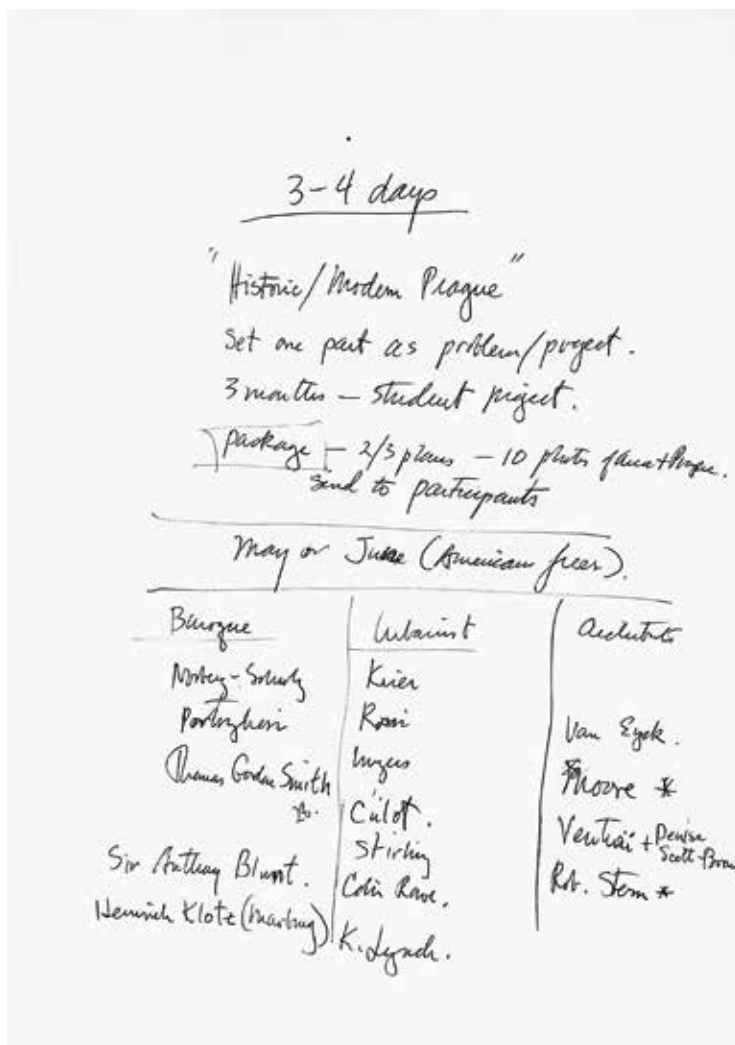 3-4 days
"Historic/Modern Prague"
Set one part as problem/project.
3 months — student project.
package — 2/3 plans — 10 photos
send to participants
May or June (Americans free).
Baroque
Norberg-Schulz
Portoghesi
Thomas Gordon Smith
Sir Anthony Blunt.
Heinrich Klotz (Marburg)
Urbanist
Krier
Rossi
Ungers
Culot.
Stirling
Colin Rowe.
K. Lynch.
Architects
Van Eyck.
*Moore *
Venturi + Denise
Scott-Brown
Rob. Stern *